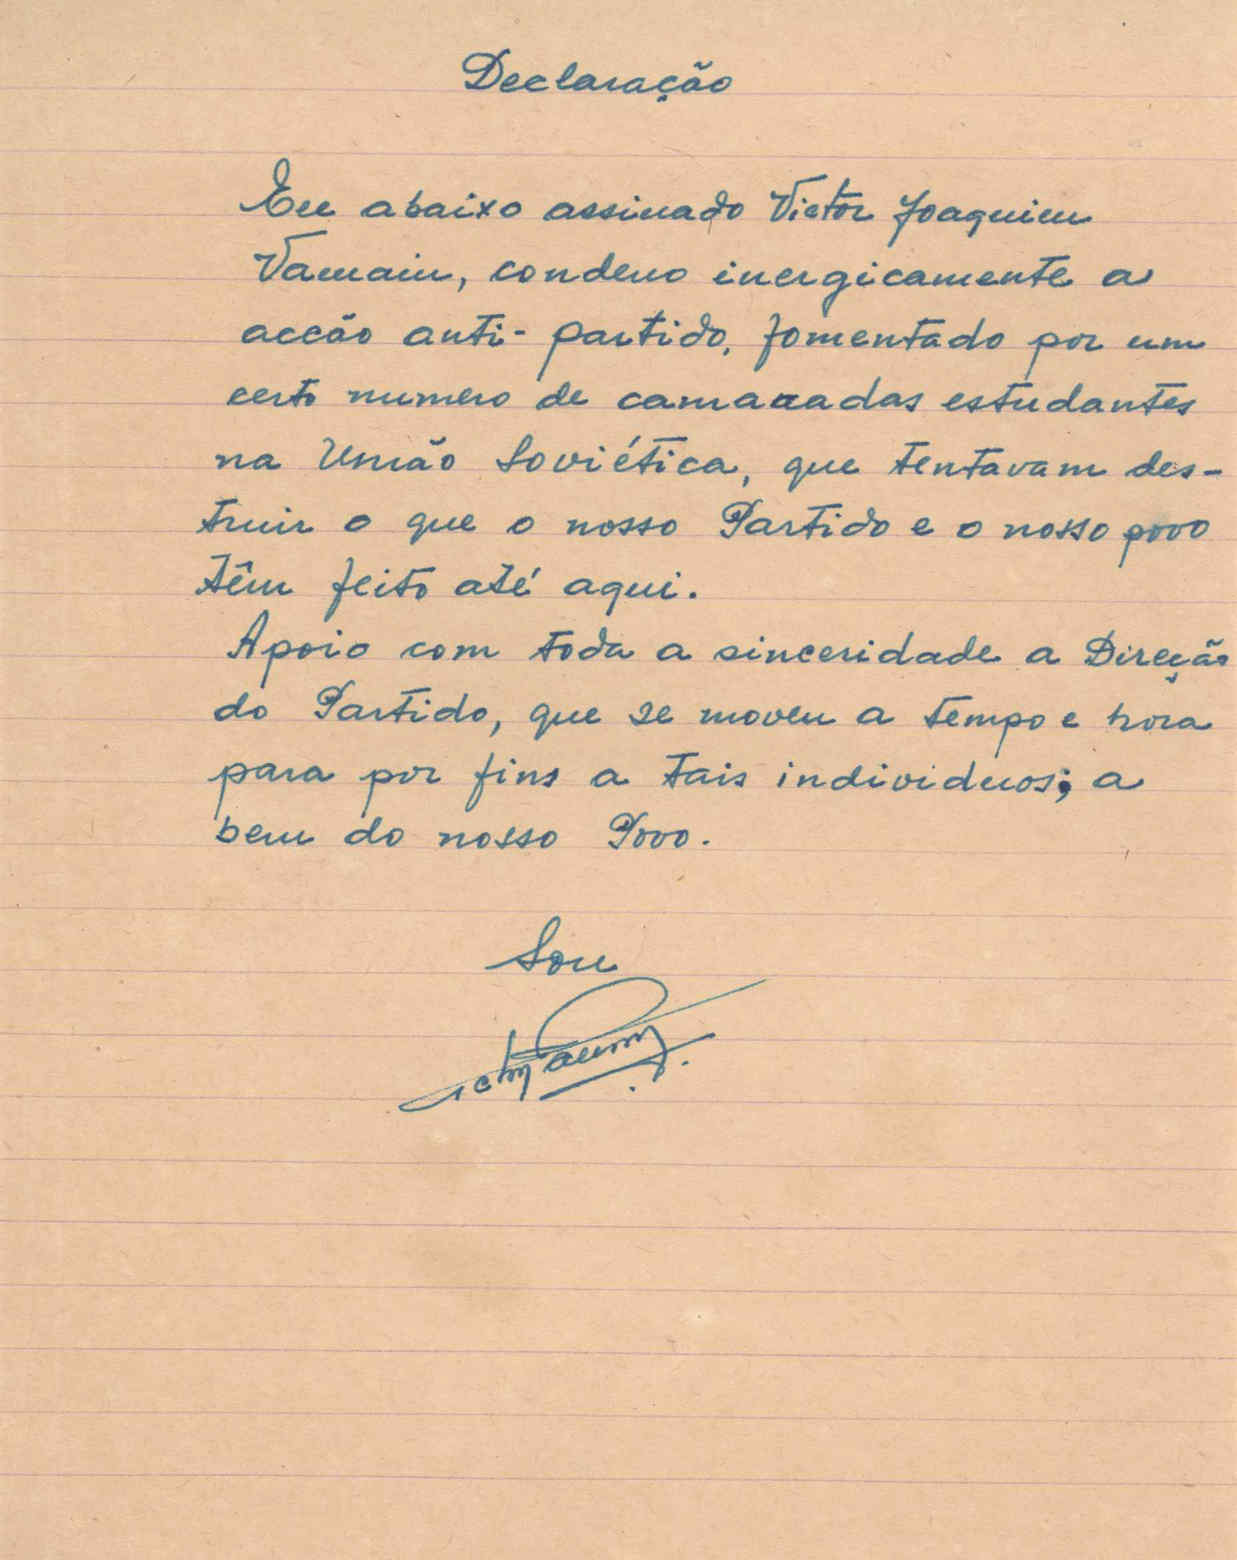 Declaração
Eu abaixo assinado Victor Joaquim
Vamain, condeno inergicamente a
accão anti-partido, fomentado por um
certo numero de camaradas estudantes
na União Soviética, que tentavam des-
truir o que o nosso Partido e o nosso povo
têm feito até aqui.
Apoio com toda a sinceridade a Direção
do Partido, que se moveu a tempo e hora
para por fins a tais individuos; a
bem do nosso Povo.
Sou